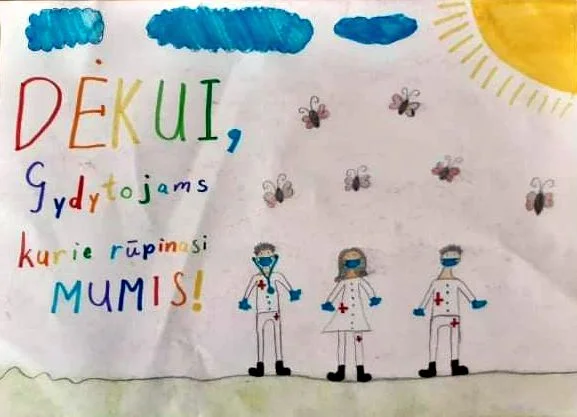 DĖKUI,
Gydytojams
kurie rūpinasi
MUMIS!